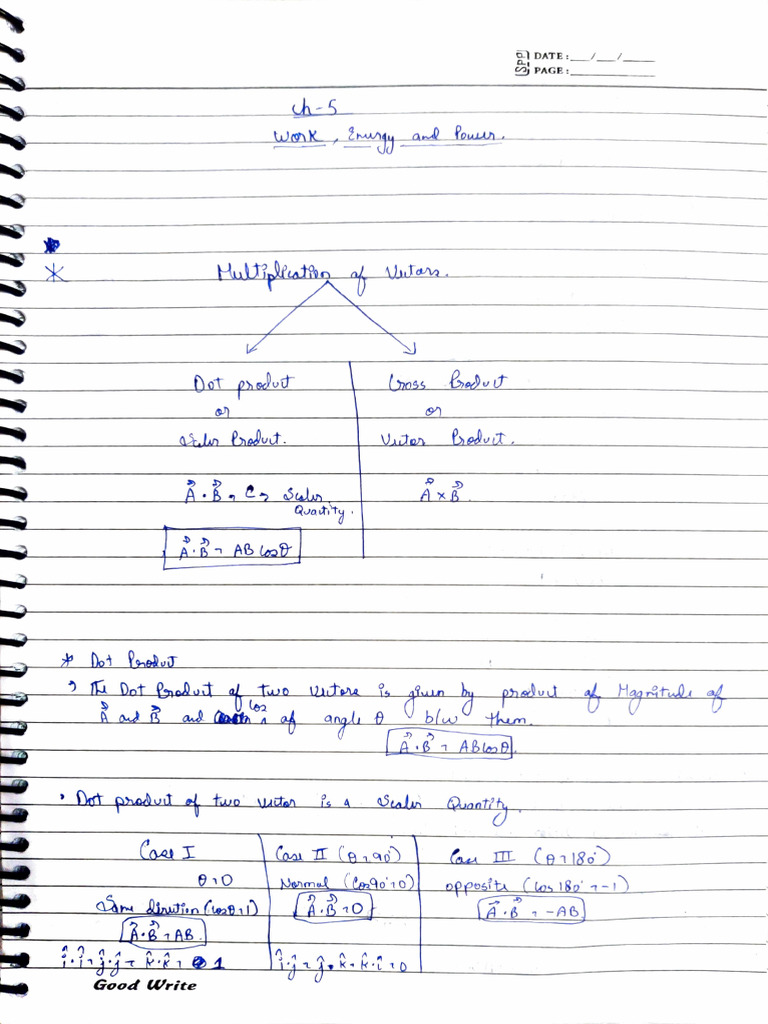 Spa DATE: __/__/____
PAGE: ________
Ch-5
Work, Energy and Power.
* Multiplication of Vectors.
Dot product | Cross Product
or | or
Scalar Product. | Vector Product.
A⃗·B⃗ = C → Scalar | A⃗ × B⃗.
Quantity.
A⃗·B⃗ = AB cosθ
* Dot Product
→ The Dot Product of two vectors is given by product of Magnitude of
A⃗ and B⃗ and cos of angle θ b/w them.
A⃗·B⃗ = ABcosθ.
• Dot product of two vector is a Scalar Quantity.
Case I | Case II (θ=90°) | Case III (θ=180°)
θ=0 | Normal (Cos90°=0) | opposite (Cos 180° = -1)
Same direction (cosθ=1) | A⃗·B⃗=0 | A⃗·B⃗ = -AB
A⃗·B⃗=AB.
î·î=ĵ·ĵ= k̂·k̂= 1 | î·ĵ=ĵ·k̂=k̂·î=0
Good Write